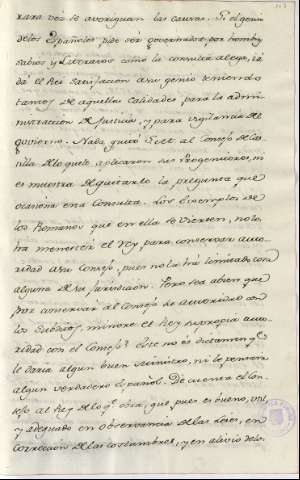 rara vez se averiguan las causas. Si el genio
de los Españoles pide ser governados por hombres
sabios y Literatos como la consulta alega, ya
da el Rei satisfacion a su genio teniendo
tantos de aquellas calidades para la admi
nistraccion de Justicia, y para vigilancia de
govierno. Nada quitó S.M. al Consejo de Cas
tilla de lo que le aplicaron sus Progenitores, ni
es muestra de quitarle la pregunta que
ocasionó esta Consulta. Los Exemplos de
los Romanos que en ella se vierten, no los
ha menester el Rey para conservar auto
ridad a su Consejo, pues no la ha limitado cosa
alguna de su jurisdicion. Pero sea a bien que
por conservar al Consejo la autoridad con
los subditos, minore el Rey su propia auto
ridad con el Consejo? Este no es dictamen qe.
le daria algun buen Ministro, ni le pensaria
algun verdadero Español. De cuenta el Con
sejo al Rey de lo qe. obra, que pues es bueno, util
y adequado en observancia de las Leies, en
correccion de las costumbres, y en alivio de los